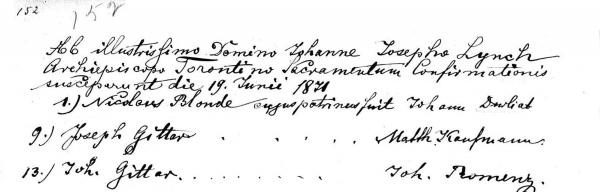 152 152
Ab illustrissimo Domino Johanne Josepho Lynch
Archiepiscopo Torontino Sacramentum Confirmationis
susceperunt die 19. Junii 1871
1.) Nicolaus Blonde cujus patrinus fuit Johann
9.) Joseph Gittar . . . . . . Matth. Kaufmann.
13.) Joh. Gittar. . . . . . . . Joh. Romenz.